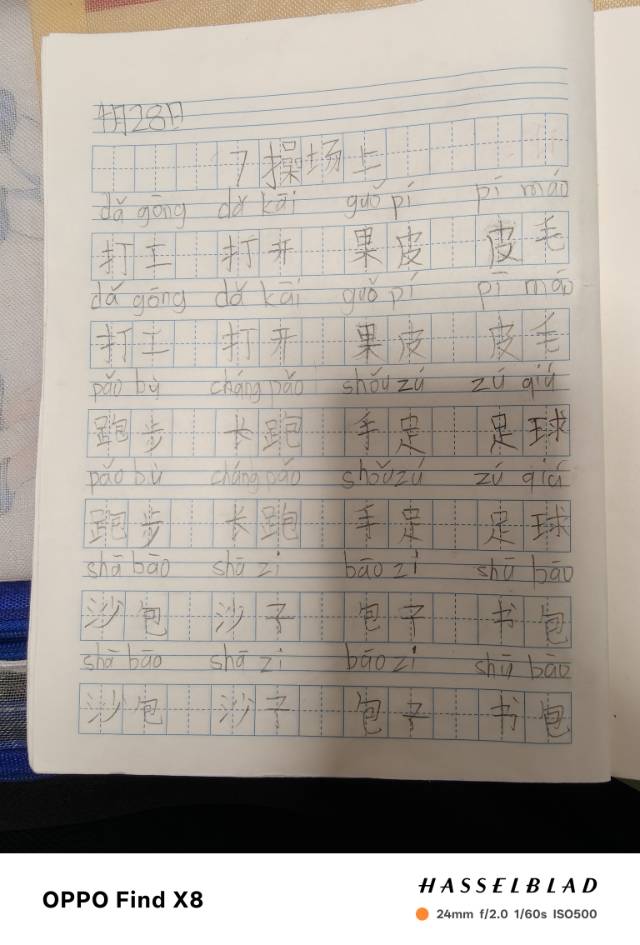 4月28日
7操场上
dǎ gōng dǎ kāi guǒ pí pí máo
打工 打开 果皮 皮毛
dǎ gōng dǎ kāi guǒ pí pí máo
打工 打开 果皮 皮毛
pǎo bù cháng pǎo shǒu zú zú qiú
跑步 长跑 手足 足球
pǎo bù cháng pǎo shǒu zú zú qiú
跑步 长跑 手足 足球
shā bāo shā zi bāo zi shū bāo
沙包 沙子 包子 书包
shā bāo shā zi bāo zi shū bāo
沙包 沙子 包子 书包
OPPO Find X8
HASSELBLAD
24mm f/2.0 1/60s ISO500